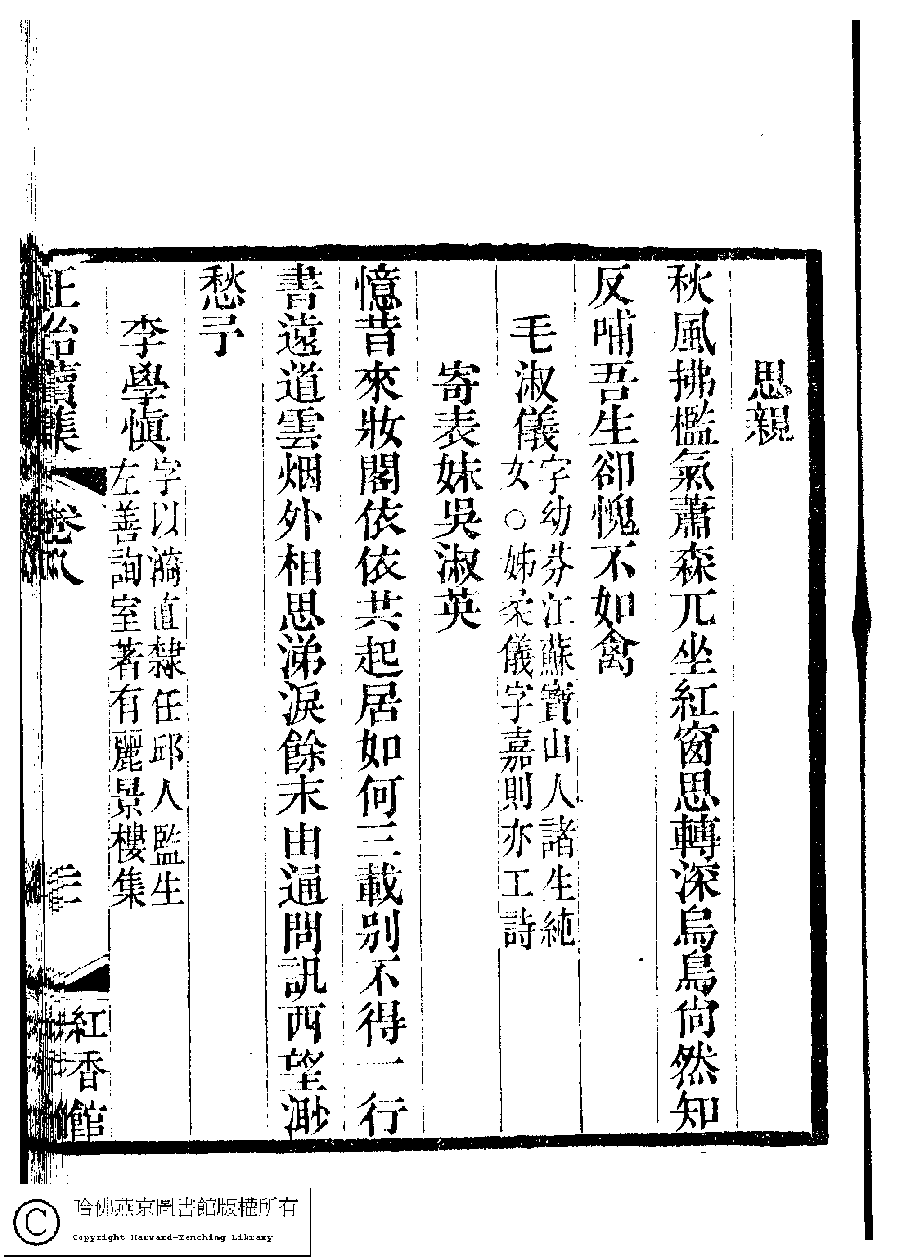 思親
秋風拂檻氣蕭森兀坐紅窗思轉深烏鳥尙然知
反哺吾生卻愧不如禽
毛淑儀字幼芬江蘇寶山人諸生純
女○姊柔儀字嘉則亦工詩
寄表妹吳淑英
憶昔來妝閣依依共起居如何三載别不得一行
書遠道雲烟外相思涕淚餘末由通問訊西望渺
愁予
李學愼字以漪直隸任邱人監生
左善詢室著有麗景樓集
正始續集
卷八
紅香館
哈佛燕京圖書館版權所有
Copyright Harvard-Yenching Library